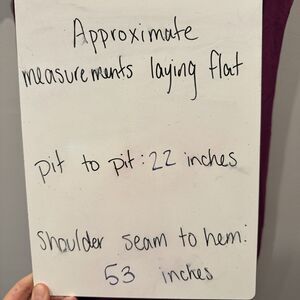 Approximate
measurements laying flat
pit to pit: 22 inches
Shoulder seam to hem:
53 inches